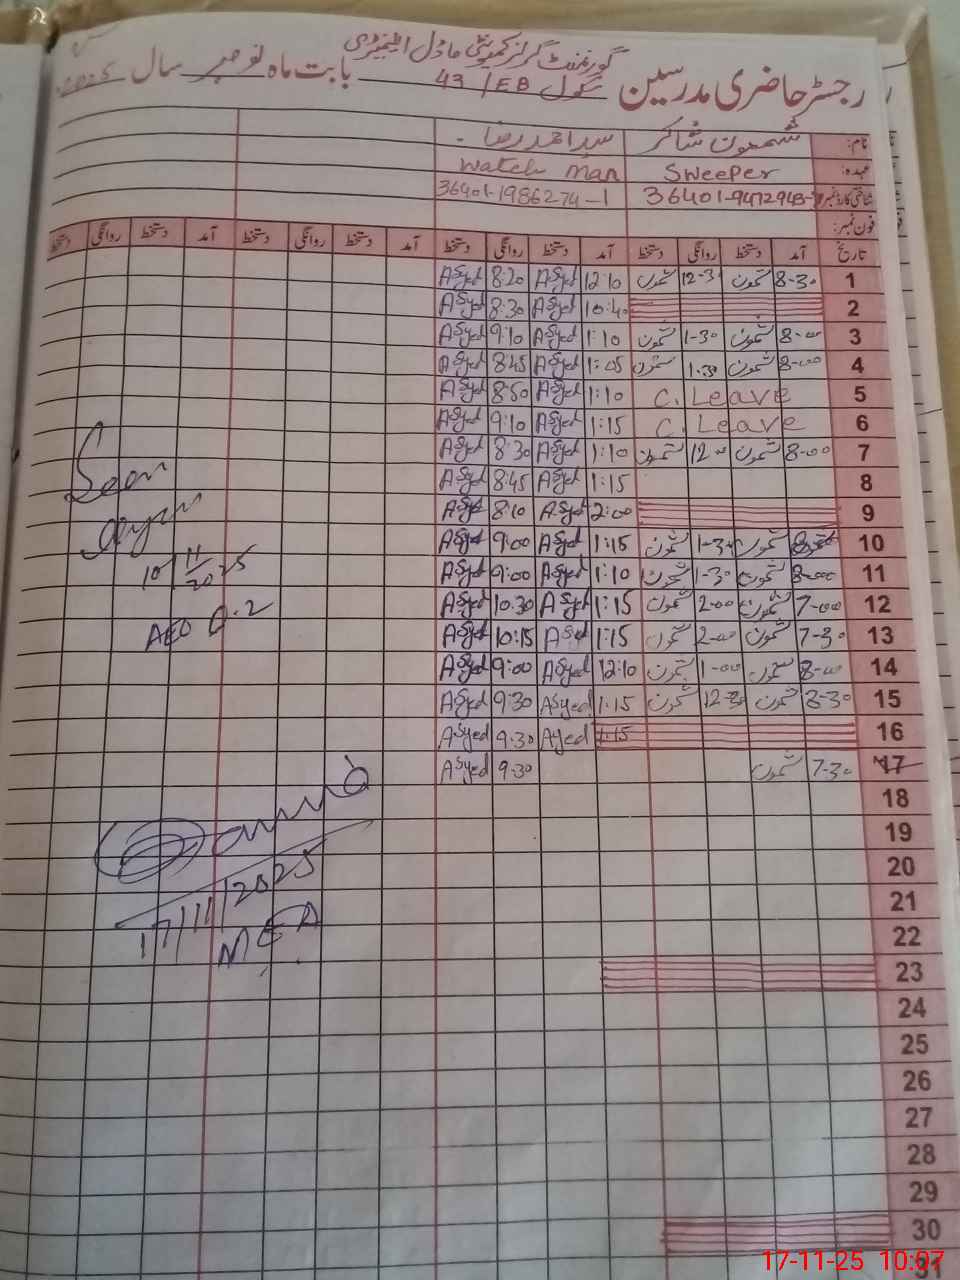 گورنمنٹ گرلز کمیونٹی ماڈل ایلیمنٹری
رجسٹر حاضری مدرسین سکول 43/EB بابت ماہ نومبر سال 2025
نام: شمعون شاکر سید احمد رضا
عہدہ: Sweeper Watch Man
شناختی کارڈ نمبر 36401-9472943- 36401-1986274-1
فون نمبر:
تاریخ آمد دستخط روانگی دستخط آمد دستخط روانگی دستخط آمد دستخط روانگی دستخط آمد دستخط روانگی دستخط
1 8-30 شمعون 12-3 شمعون 12:10 ASyed 8:20 ASyed
2 10:40 ASyed 8:30 ASyed
3 8-00 شمعون 1-30 شمعون 1:10 ASyed 9:10 ASyed
4 8-00 شمعون 1.30 شمعون 1:05 ASyed 8:45 ASyed
5 C. Leave 1:10 ASyed 8:50 ASyed
6 C. Leave 1:15 ASyed 9:10 ASyed
7 8-00 شمعون 12 شمعون 1:10 ASyed 8:30 ASyed
8 1:15 ASyed 8:45 ASyed
9 2:00 ASyed 8:10 ASyed
10 شمعون 1-30 شمعون 1:15 ASyed 9:00 ASyed
11 8-00 شمعون 1-30 شمعون 1:10 ASyed 9:00 ASyed
12 7-00 شمعون 2-00 شمعون 1:15 ASyed 10:30 ASyed
13 7-30 شمعون 2-00 شمعون 1:15 ASyed 10:15 ASyed
14 8-00 شمعون 1-00 شمعون 12:10 ASyed 9:00 ASyed
15 8-30 شمعون 12-30 شمعون 1:15 ASyed 9:30 ASyed
16 1:15 Ayed 9.30 ASyed
17 7-30 شمعون 9.30 ASyed
18
19
20
21
22
23
24
25
26
27
28
29
30
31
Seen
10/11/2025
AEO
17/11/2025
MEA
17-11-25 10:07